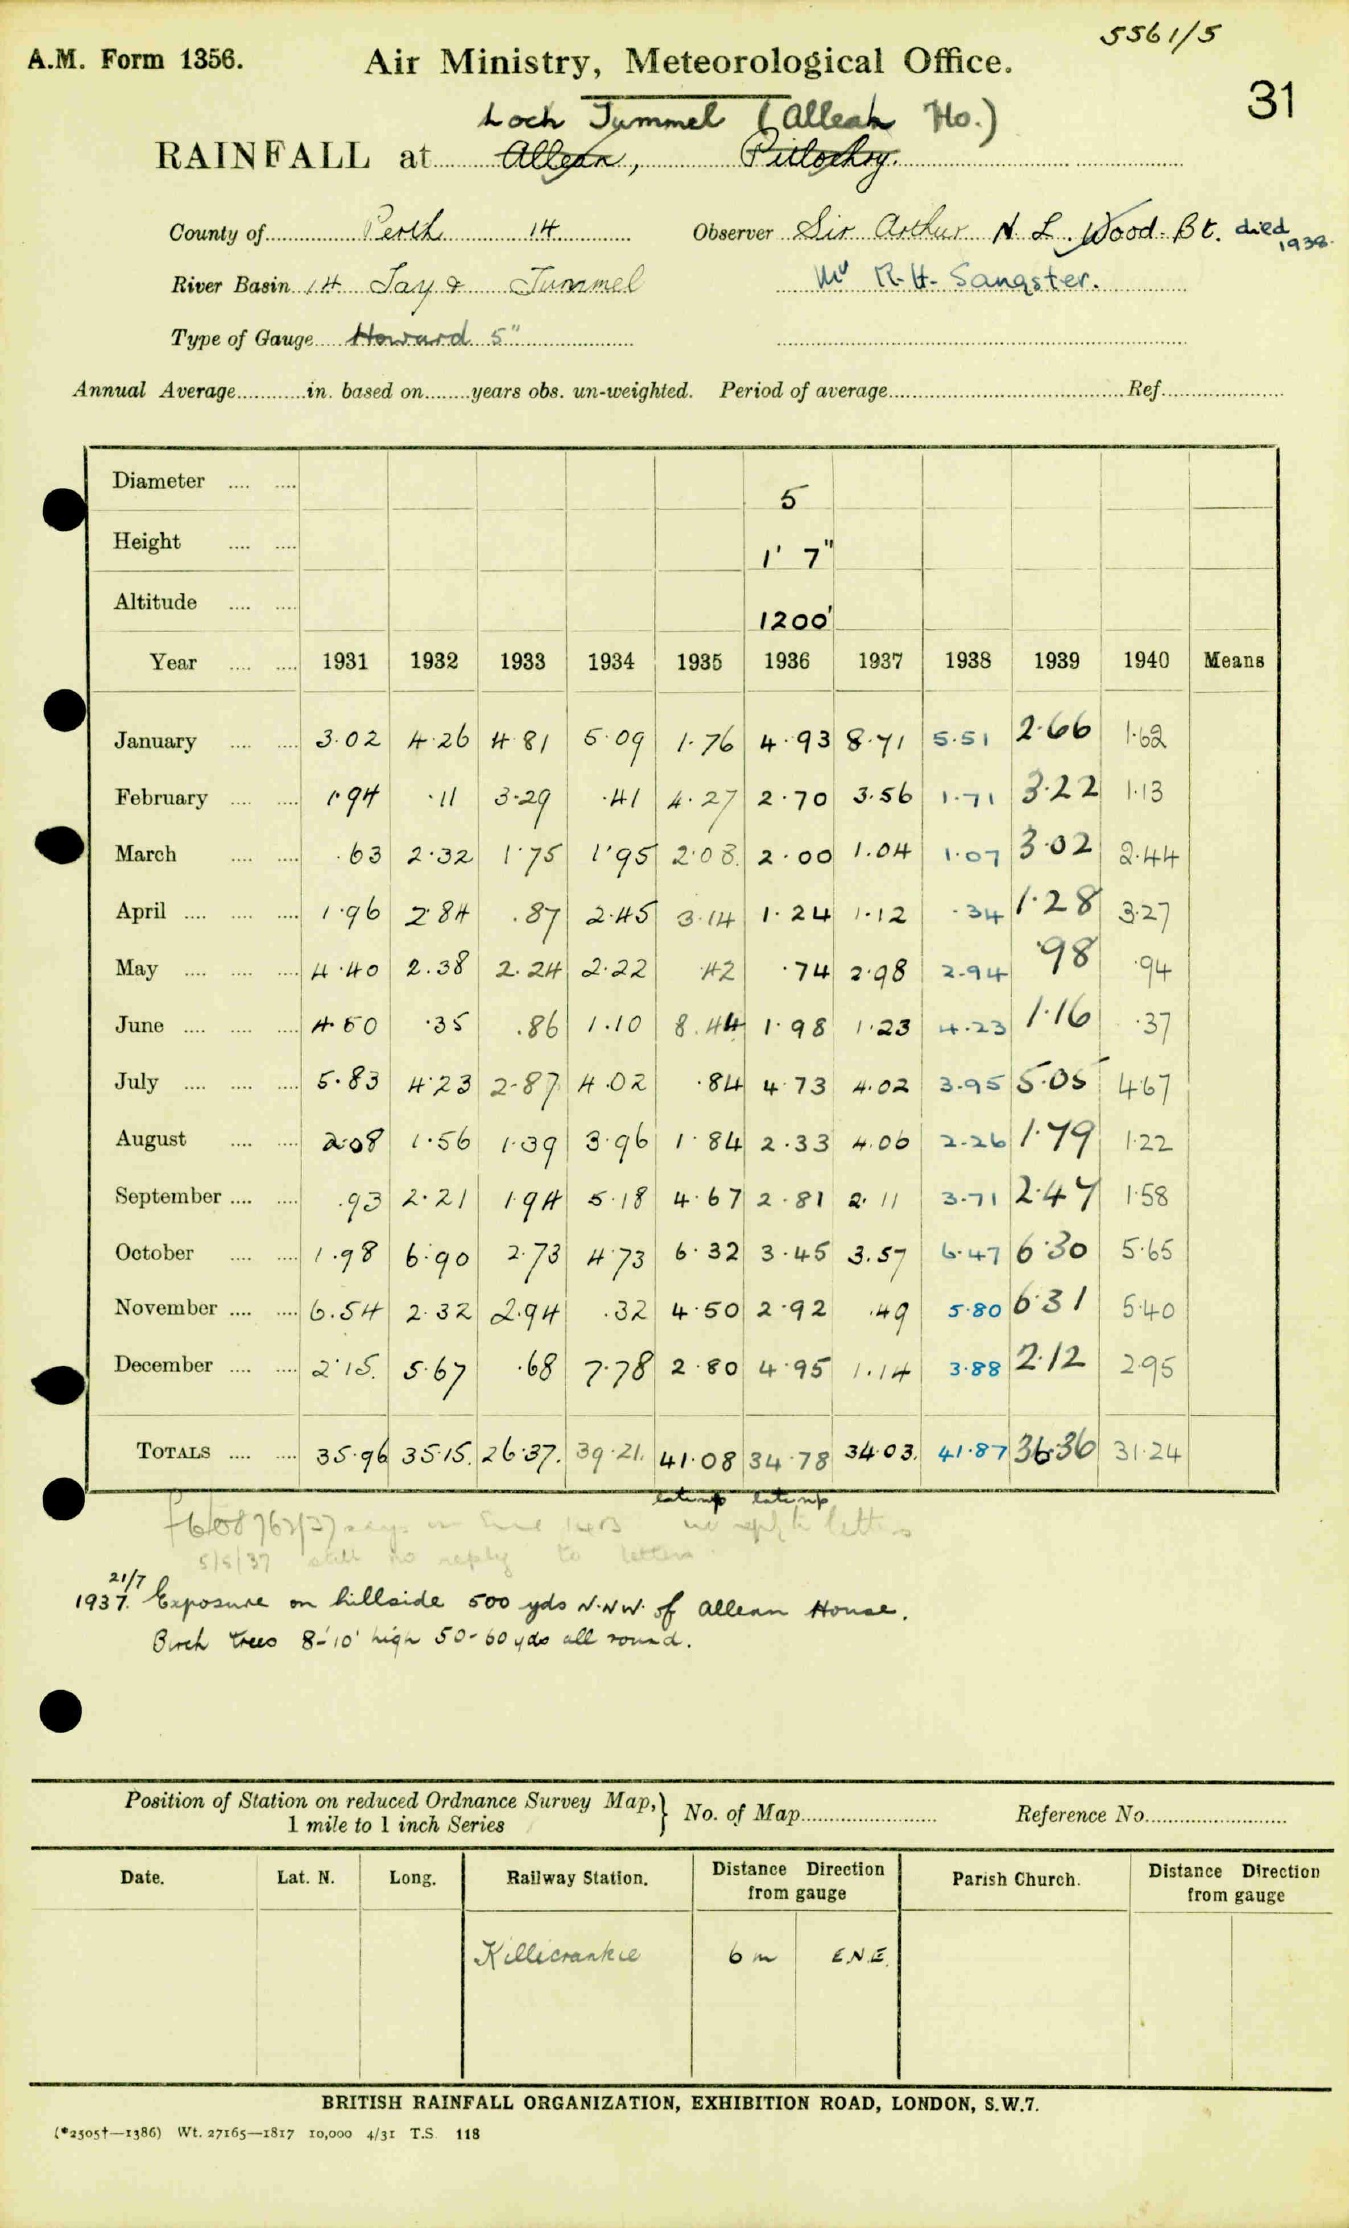 5561/5
A.M. Form 1356. Air Ministry, Meteorological Office.
31
Loch Tummel (Allean Ho.)
RAINFALL at Allean, Pitlochry.
County of Perth 14 Observer Sir Arthur N. L. Wood. Bt. died 1938.
River Basin 14 Tay & Tummel Mr R.H. Sangster.
Type of Gauge Howard 5"
Annual Average in. based on years obs. un-weighted. Period of average Ref.
Diameter 5
Height 1' 7"
Altitude 1200'
Year 1931 1932 1933 1934 1935 1936 1937 1938 1939 1940 Means
January 3.02 4.26 4.81 5.09 1.76 4.93 8.71 5.51 2.66 1.62
February 1.94 .11 3.29 .41 4.27 2.70 3.56 1.71 3.22 1.13
March .63 2.32 1.75 1.95 2.08 2.00 1.04 1.07 3.02 2.44
April 1.96 2.84 .87 2.45 3.14 1.24 1.12 .34 1.28 3.27
May 4.40 2.38 2.24 2.22 .42 .74 2.98 2.94 .98 .94
June 4.50 .35 .86 1.10 8.44 1.98 1.23 4.23 1.16 .37
July 5.83 4.23 2.87 4.02 .84 4.73 4.02 3.95 5.05 4.67
August 2.08 1.56 1.39 3.96 1.84 2.33 4.06 2.26 1.79 1.22
September .93 2.21 1.94 5.18 4.67 2.81 2.11 3.71 2.47 1.58
October 1.98 6.90 2.73 4.73 6.32 3.45 3.57 6.47 6.30 5.65
November 6.54 2.32 2.94 .32 4.50 2.92 .49 5.80 6.31 5.40
December 2.15. 5.67 .68 7.78 2.80 4.95 1.14 3.88 2.12 2.95
TOTALS 35.96 35.15. 26.37. 39.21. 41.08 34.78 34.03. 41.87 36.36 31.24
no reply to letters
5/5/37 still no reply to letters
21/7
1937. Exposure on hillside 500 yds N.N.W. of Allean House.
Birch trees 8-10' high 50-60 yds all round.
Position of Station on reduced Ordnance Survey Map, 1 mile to 1 inch Series } No. of Map Reference No.
Date. Lat. N. Long. Railway Station. Distance Direction from gauge Parish Church. Distance Direction from gauge
Killiecrankie 6 m E.N.E.
BRITISH RAINFALL ORGANIZATION, EXHIBITION ROAD, LONDON, S.W.7.
(*2505†—1386) Wt. 27165—1817 10,000 4/31 T.S. 118